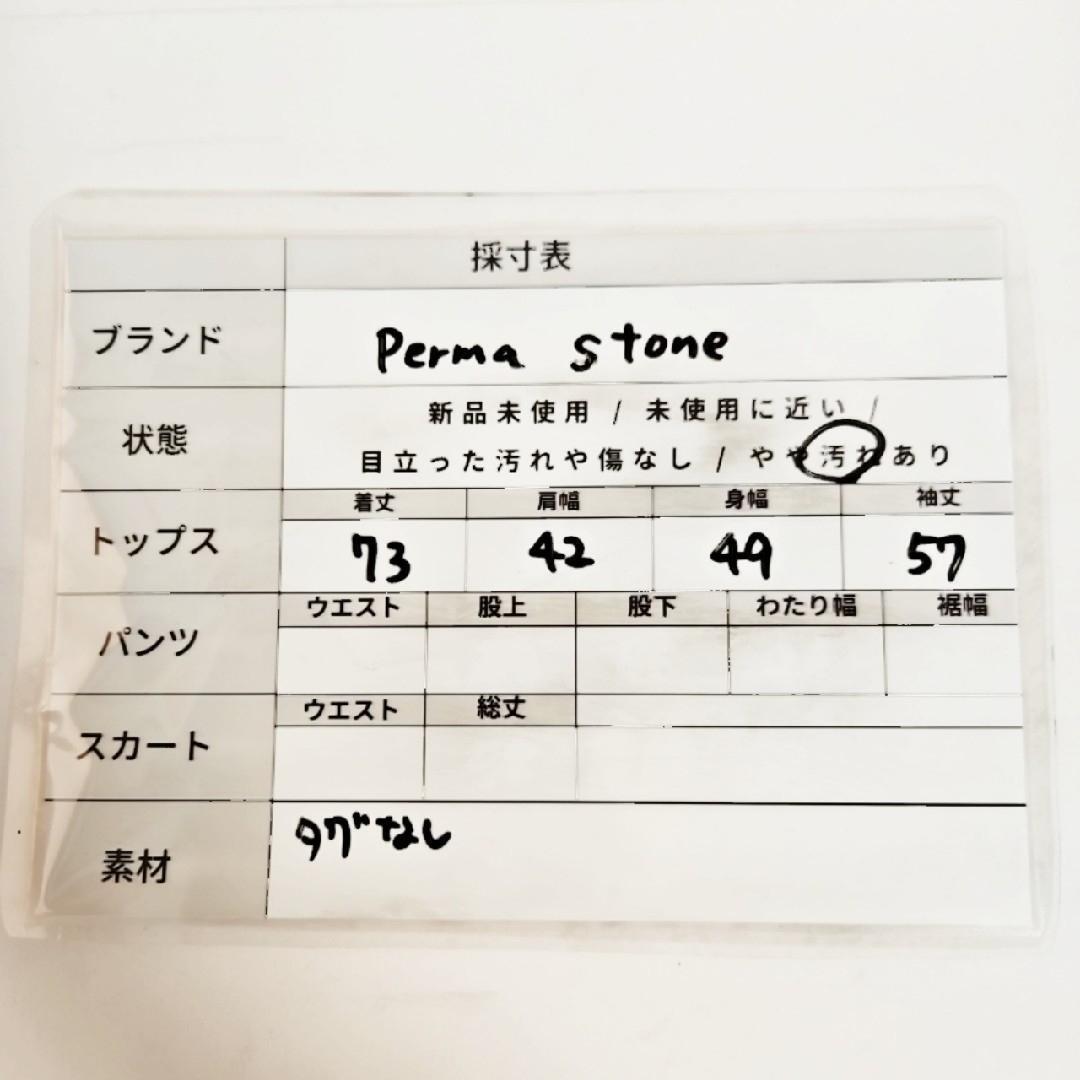 採寸表
ブランド Perma stone
新品未使用 / 未使用に近い /
状態
目立った汚れや傷なし / やや汚れあり
着丈 肩幅 身幅 袖丈
トップス 73 42 49 57
ウエスト 股上 股下 わたり幅 裾幅
パンツ
ウエスト 総丈
スカート
タグなし
素材